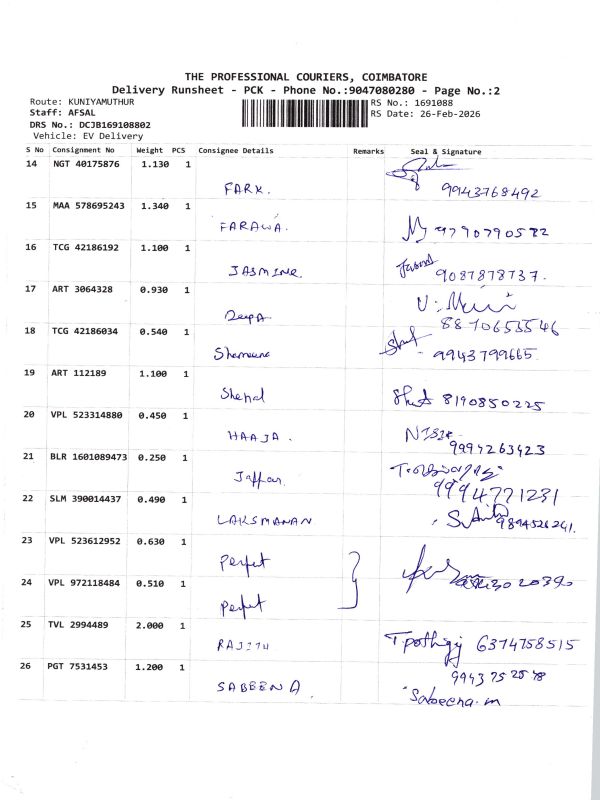 THE PROFESSIONAL COURIERS, COIMBATORE
Delivery Runsheet - PCK - Phone No.:9047080280 - Page No.:2
Route: KUNIYAMUTHUR RS No.: 1691088
Staff: AFSAL RS Date: 26-Feb-2026
DRS No.: DCJB169108802
Vehicle: EV Delivery
S No Consignment No Weight PCS Consignee Details Remarks Seal & Signature
14 NGT 40175876 1.130 1
FARK. 9943768492
15 MAA 578695243 1.340 1
FARAWA. 9790790582
16 TCG 42186192 1.100 1
JASMINE. 9087878737.
17 ART 3064328 0.930 1
Deepa 8870655546
18 TCG 42186034 0.540 1
Shameena 9943799665
19 ART 112189 1.100 1
Shehal 8190850225
20 VPL 523314880 0.450 1
HAAJA. 9994263423
21 BLR 1601089473 0.250 1
Jaffar. 9994771231
22 SLM 390014437 0.490 1
LAKSMANAN 9894526241.
23 VPL 523612952 0.630 1
Perfect
24 VPL 972118484 0.510 1
Perfect
25 TVL 2994489 2.000 1
RAJITH 6374758515
26 PGT 7531453 1.200 1
SABEENA 9943752578
Sabeena.m